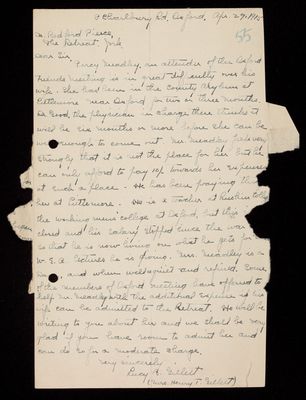 Banbury Rd, Oxford, Apr. 29, 1915
55
Dr. Bedford Pierce,
The Retreat, York.
Dear Sir,
Percy Meadley, an attender of the Oxford
Friends meeting is in great difficulty over his
wife. She has been in the County Asylum at
Littlemore near Oxford for two or three months.
Dr Good, the physician in charge there thinks it
will be six months or more before she can be
well enough to come out. Mr. Meadley feels very
strongly that it is not the place for her but he
can only afford to pay up towards her expenses
at such a place. He has been paying 14/ for
her at Littlemore. He is a teacher at Ruskin College
the working men's college at Oxford, but this is
closed and his salary stopped since the war
so that he is now living on what he gets for
W. E. A. lectures he is giving. Mrs. Meadley is a
and when well quiet and refined. Some
of the members of Oxford meeting have offered to
help Mr. Meadley with the additional expense if his
wife can be admitted to the Retreat. He will be
writing to you about her and we should be very
glad if you have room to admit her and
can do so for a moderate charge.
Very sincerely
Lucy B. Gillett
(Mrs. Henry T. Gillett)